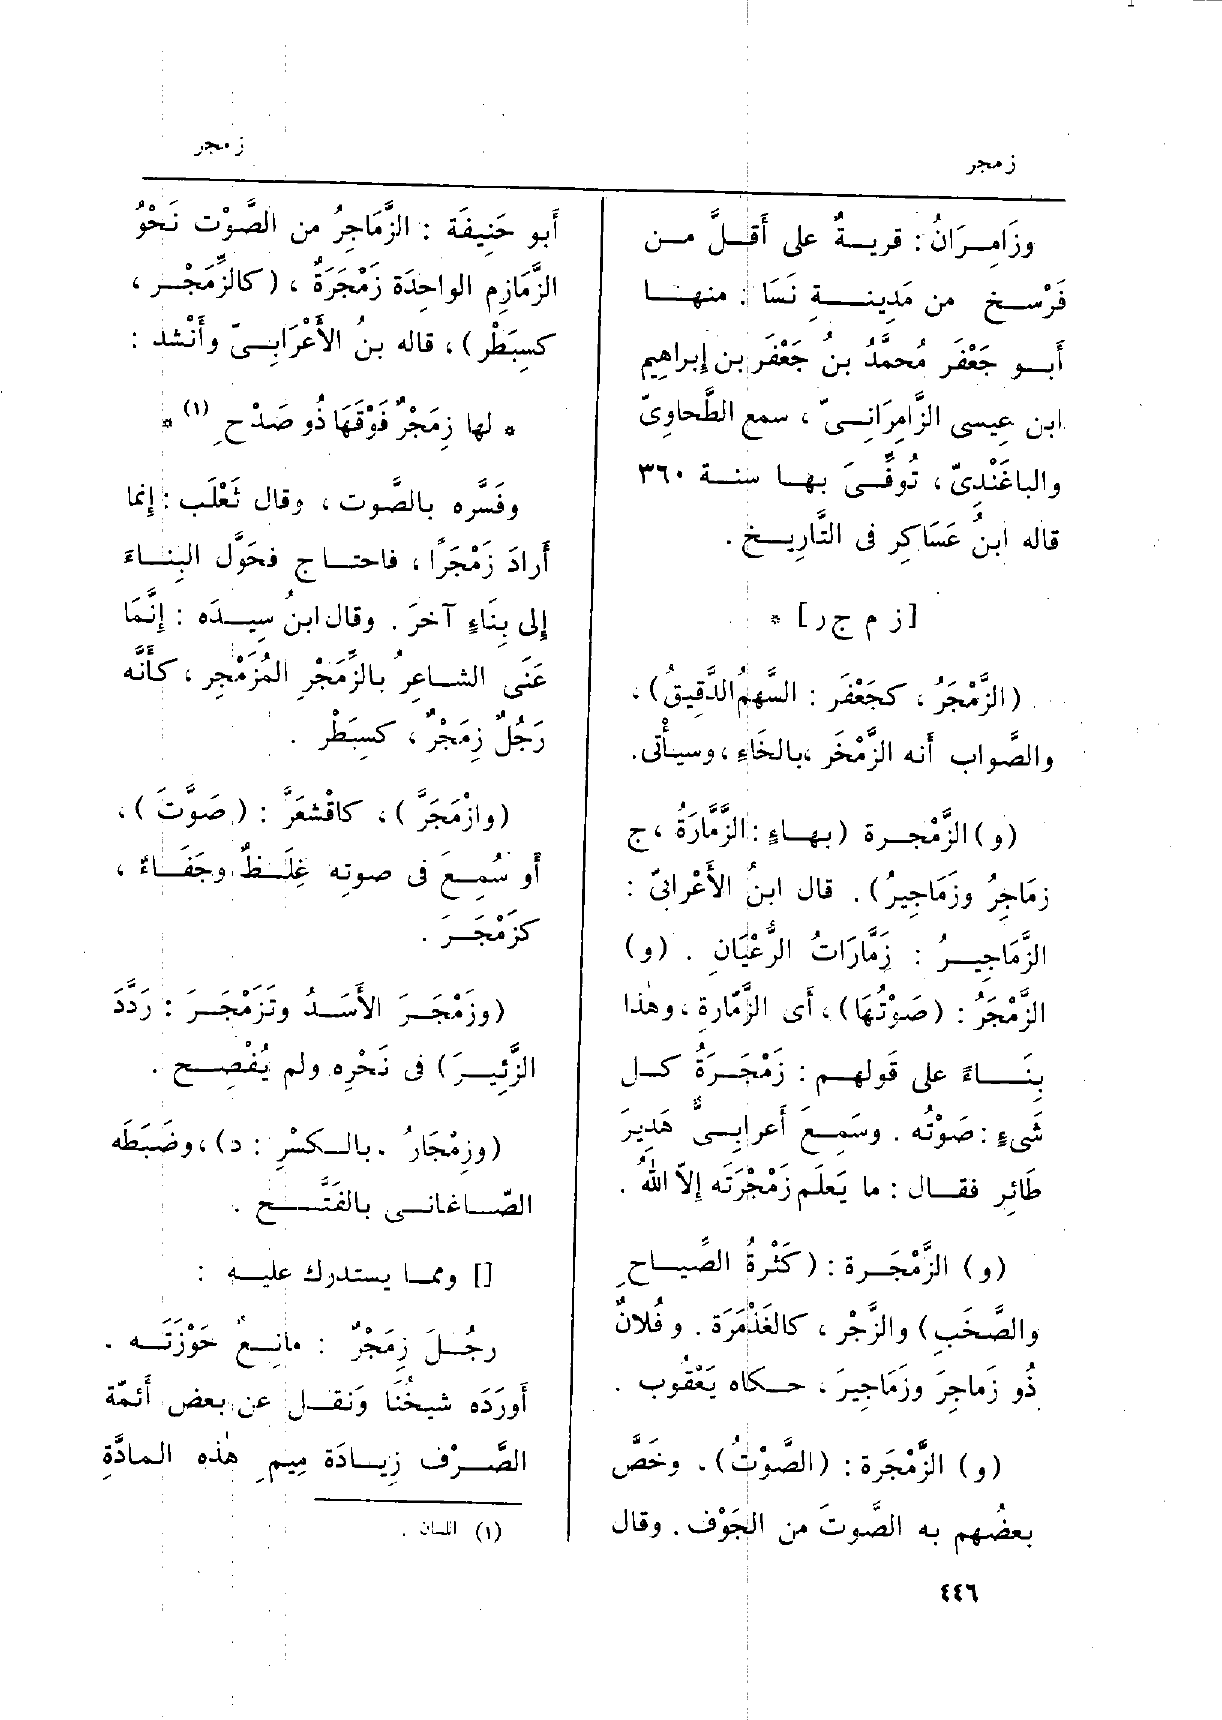 زمجر
زمجر
وزَامِرَانُ : قريةٌ على أَقلَّ من
فَرْسخ من مَدِينةِ نَسَا : منها
أَبو جَعْفَر مُحمَّدُ بنُ جَعْفَر بن إبراهِيم
ابن عِيسى الزَّامِرَانِىّ ، سمع الطَّحاوِىّ
والباغَنْدِىّ ، تُوفِّىَ بها سنة ٣٦٠
قاله ابنُ عَسَاكِر فى التَّارِيخ .
[ز م ج ر] *
(الزَّمْجَرُ ، كجَعْفَر : السَّهمُ الدَّقِيقُ) ،
والصَّواب أنه الزَّمْخَر ، بالخَاءِ ، وسيأْتى.
(و) الزَّمْجرة (بهاءٍ : الزَّمَّارَةُ ، ج
زمَاجِرُ وزَمَاجِيرُ) . قال ابنُ الأَعْرابىّ :
الزَّمَاجِيرُ : زَمَّارَاتُ الرُّعْيَانِ . (و)
الزَّمْجَرُ : (صَوْتُهَا) ، أى الزَّمّارةِ ، وهٰذا
بِنَاءً على قَولهم : زَمْجَرَةُ كل
شَىءٍ : صَوْتُه . وسَمِعَ أَعرابِىٌّ هَدِيرَ
طَائِر فقال : ما يَعلَم زَمْجَرَتَه إلاّ اللهُ .
(و) الزَّمْجَرة : (كَثْرةُ الصِّياحِ
والصَّخَبِ) والزَّجْر ، كالغَذْمَرَة . وفُلانٌ
ذُو زَماجِرَ وزَمَاجِيرَ ، حكاه يَعْقُوب .
(و) الزَّمْجَرة : (الصَّوْتُ) . وخَصَّ
بعضُهم به الصَّوتَ من الجَوْف . وقال
أَبو حَنِيفَة : الزَّمَاجِرُ من الصَّوْت نَحْوُ
الزَّمَازِم الواحِدَة زَمْجَرَةٌ ، (كالزِّمَجْرِ ،
كسِبَطْر) ، قاله بنُ الأَعْرَابِىّ وأَنْشد :
* لها زِمَجْرٌ فَوْقَهَا ذُو صَدْحِ (١) *
وفَسَّره بالصَّوت ، وقال ثَعْلَب : إنما
أَرادَ زَمْجَرًا ، فاحتاج فحَوَّل البِناءَ
إلى بِنَاءٍ آخرَ . وقال ابنُ سِيدَه : إنَّمَا
عَنَى الشاعِرُ بالزِّمَجْرِ المُزَمْجِر ، كأَنَّه
رَجُلٌ زِمَجْرٌ ، كسِبَطْر .
(وازْمَجَرَّ) ، كاقْشعَرَّ : (صَوَّتَ) ،
أو سُمِعَ فى صوتِه غِلَظٌ وجَفَاءٌ ،
كزَمْجَرَ .
(وزَمْجَرَ الأَسَدُ وتَزَمْجَرَ : رَدَّدَ
الزَّئِيرَ) فى نَحْرِه ولم يُفْصِح .
(وزِمْجَارُ . بالكسْرِ : د) ، وضَبَطَه
الصّاغانى بالفَتْح .
[] ومما يستدرك عليه :
رجُلَ زِمَجْرٌ : مانِعٌ حَوْزَتَه .
أَورَدَه شيخُنَا وَنقل عن بعض أَئمّة
الصَّرْف زِيادَة مِيمِ هٰذه المادَّةِ
(١) اللسان .
٤٤٦